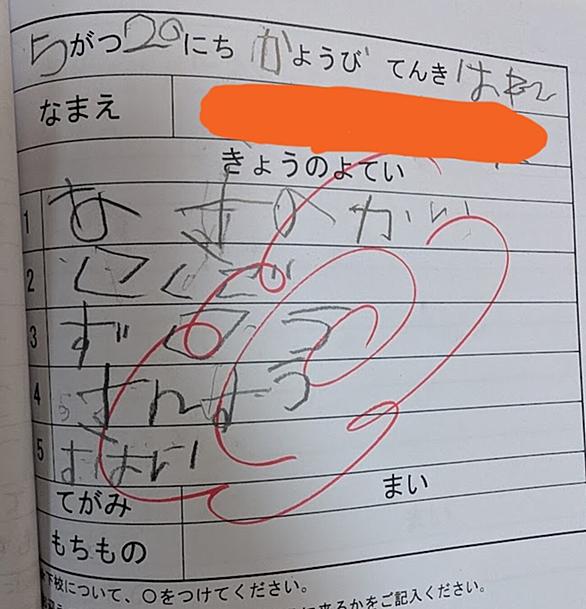 5がつ20にち かようび てんき はれ
なまえ
きょうのよてい
1 あすのかい
2 こくご
3 ずこう
4 さんすう
5
てがみ まい
もちもの
下校について、○をつけてください。
に来るかをご記入ください。